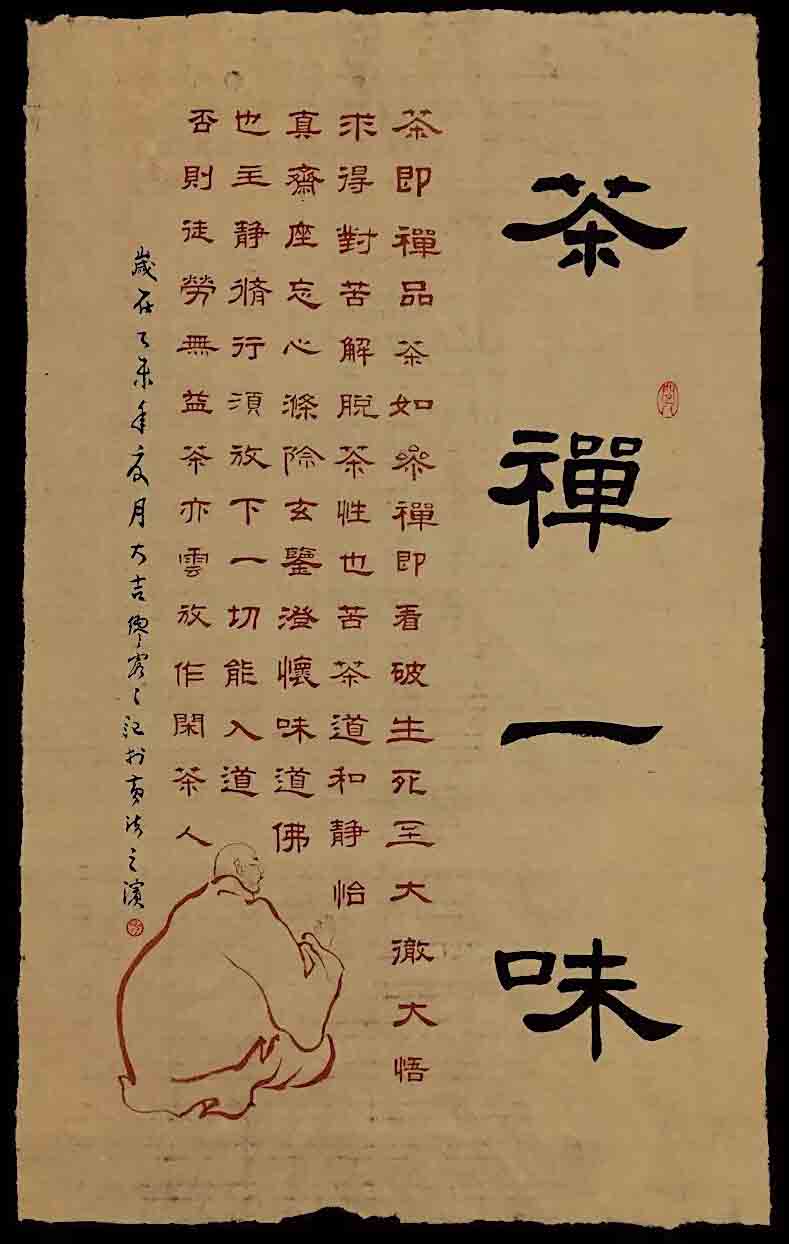 茶禪一味
茶即禪品茶如參禪即看破生死至大徹大悟
求得對苦解脫茶性也苦茶道和静怡
真齋座忘心滌除玄鑒澄懷味道佛
也主静脩行須放下一切能入道
否則徒勞無益茶亦雲放作閑茶人
歲在乙未年夏月大吉 記於 之濱